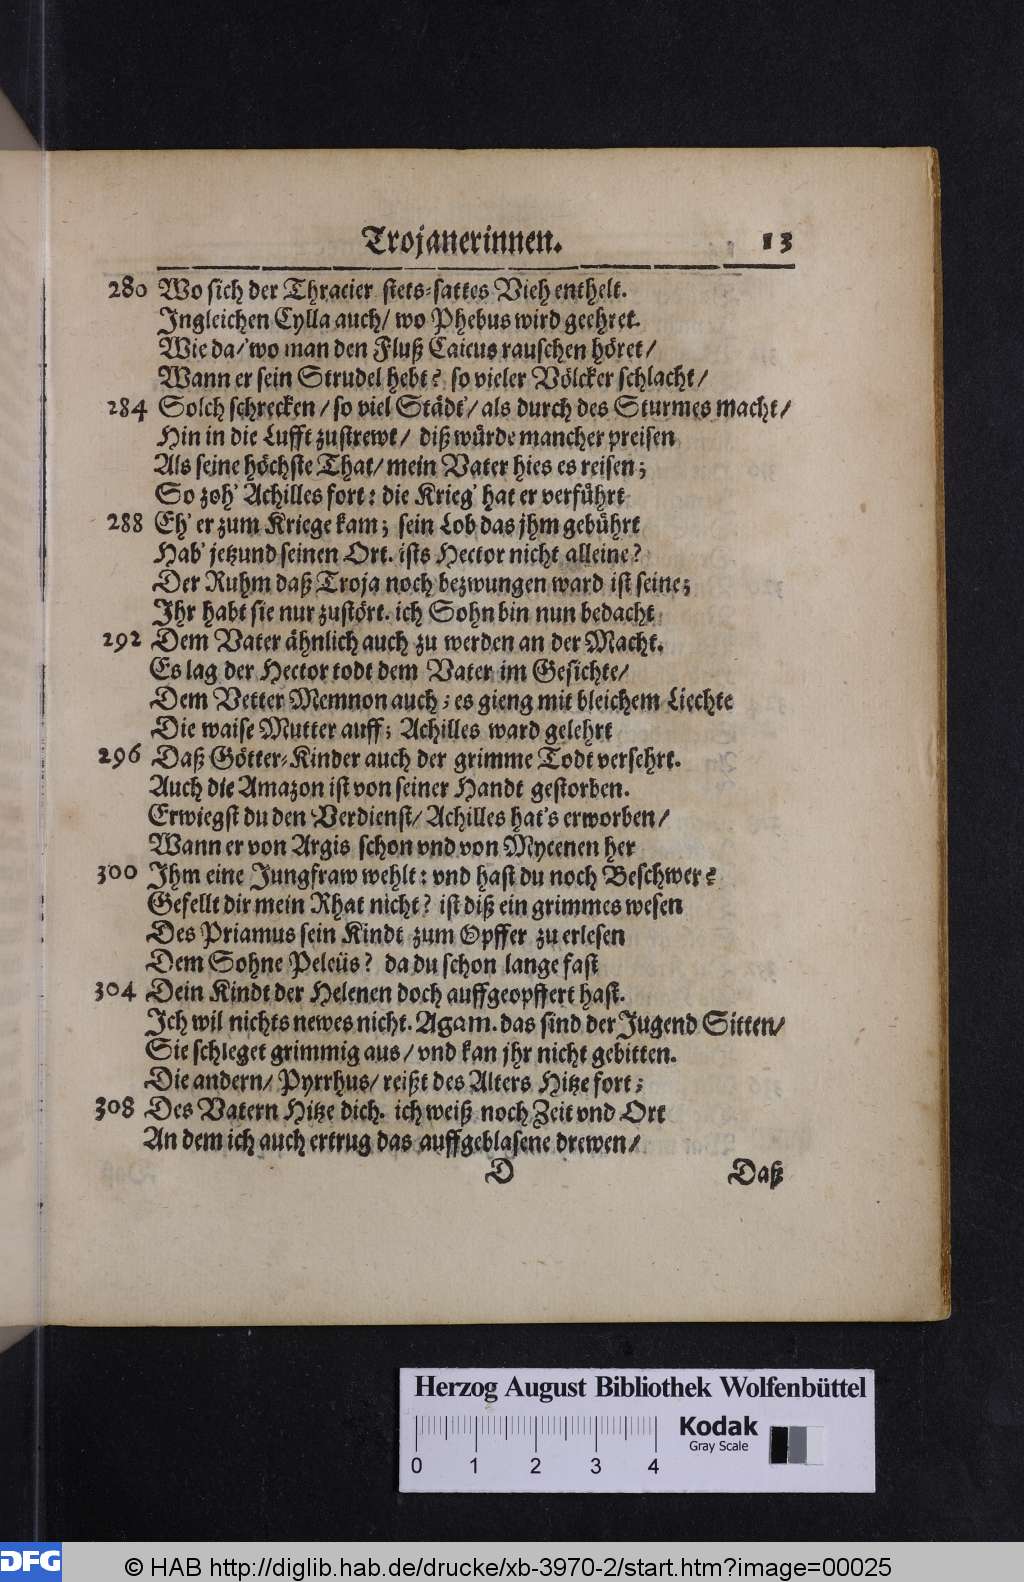 Trojanerinnen. 13
280 Wo sich der Thracier stets-sattes Vieh enthelt.
Ingleichen Cylla auch/ wo Phebus wird geehret.
Wie da/ wo man den Fluß Caicus rauschen höret/
Wann er sein Strudel hebt? so vieler Völcker schlacht/
284 Solch schrecken/ so viel Städt'/ als durch des Sturmes macht/
Hin in die Lufft zustrewt/ diß würde mancher preisen
Als seine höchste That/ mein Vater hies es reisen;
So zoh' Achilles fort: die Krieg' hat er verführt
288 Eh' er zum Kriege kam; sein Lob das jhm gebührt
Hab' jetzund seinen Ort. ists Hector nicht alleine?
Der Ruhm daß Troja noch bezwungen ward ist seine;
Ihr habt sie nur zustört. ich Sohn bin nun bedacht
292 Dem Vater ähnlich auch zu werden an der Macht.
Es lag der Hector todt dem Vater im Gesichte/
Dem Vetter Memnon auch; es gieng mit bleichem Liechte
Die waise Mutter auff; Achilles ward gelehrt
296 Daß Götter-Kinder auch der grimme Todt versehrt.
Auch die Amazon ist von seiner Handt gestorben.
Erwiegst du den Verdienst/ Achilles hat's erworben/
Wann er von Argis schon vnd von Mycenen her
300 Ihm eine Jungfraw wehlt: vnd hast du noch Beschwer?
Gefellt dir mein Rhat nicht? ist diß ein grimmes wesen
Des Priamus sein Kindt zum Opffer zu erlesen
Dem Sohne Peleüs? da du schon lange fast
304 Dein Kindt der Helenen doch auffgeopffert hast.
Ich wil nichts newes nicht. Agam. das sind der Jugend Sitten/
Sie schleget grimmig aus/ vnd kan jhr nicht gebitten.
Die andern/ Pyrrhus/ reißt des Alters Hitze fort;
308 Des Vatern Hitze dich. ich weiß noch Zeit vnd Ort
An dem ich auch ertrug das auffgeblasene drewen/
D Daß
Herzog August Bibliothek Wolfenbüttel
Kodak
Gray Scale
0 1 2 3 4
DFG © HAB http://diglib.hab.de/drucke/xb-3970-2/start.htm?image=00025